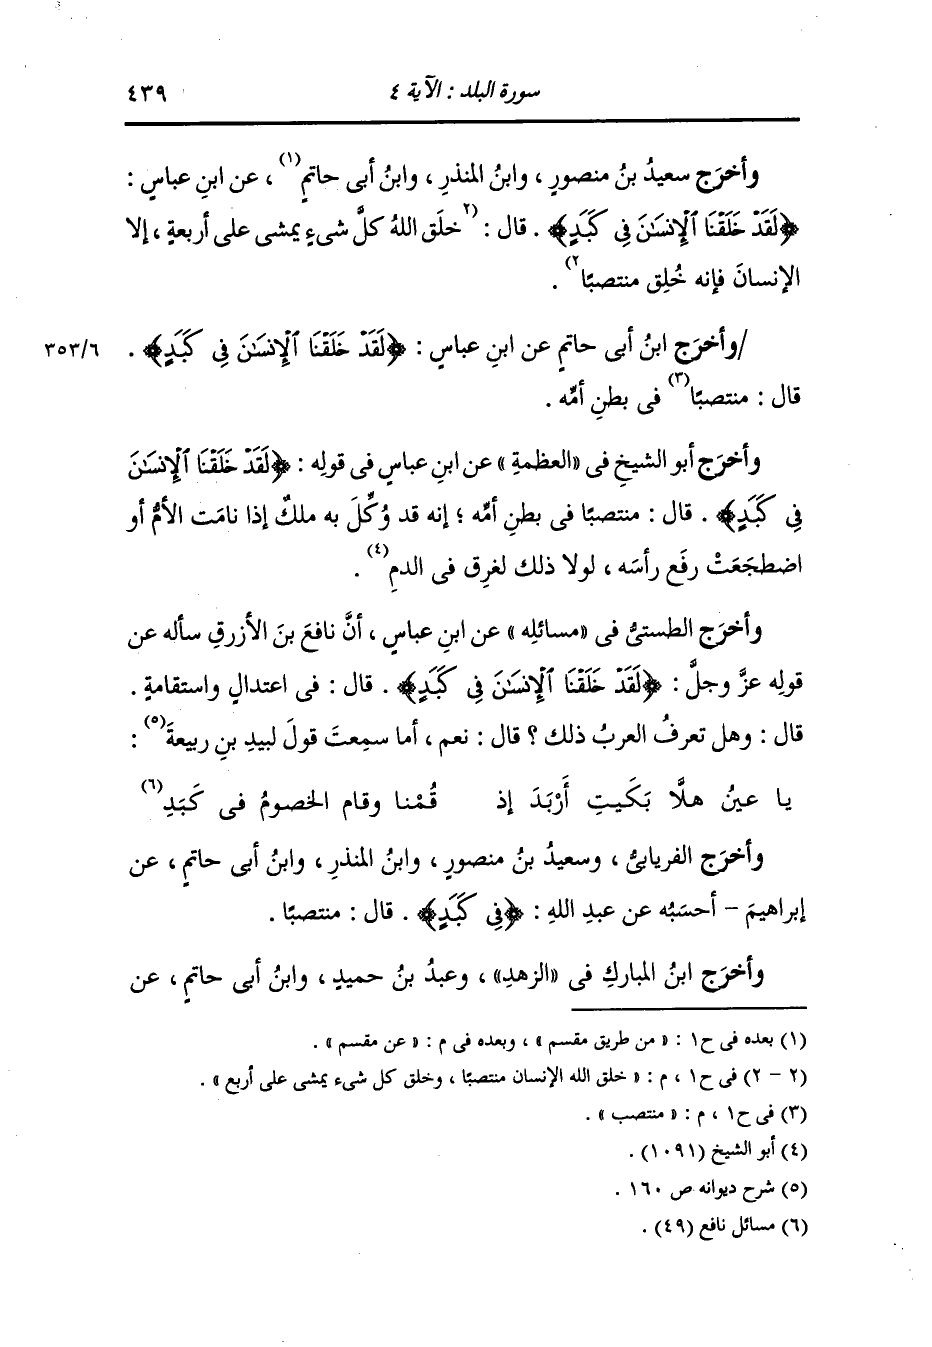 سورة البلد : الآية ٤
٤٣٩
وأخرَج سعيدُ بنُ منصورٍ ، وابنُ المنذرِ ، وابنُ أبى حاتمٍ(١) ، عن ابنِ عباسٍ :
﴿لَقَدۡ خَلَقۡنَا ٱلۡإِنسَٰنَ فِى كَبَدٍ﴾ . قال : (٢خلَق اللهُ كلَّ شىءٍ يمشى على أربعةٍ ، إلا
الإنسانَ فإنه خُلِق منتصبًا٢) .
/وأخرَج ابنُ أبى حاتمٍ عن ابنِ عباسٍ : ﴿لَقَدۡ خَلَقۡنَا ٱلۡإِنسَٰنَ فِى كَبَدٍ﴾ .
٣٥٣/٦
قال : منتصبًا(٣) فى بطنِ أمِّه .
وأخرَج أبو الشيخِ فى «العظمةِ» عن ابنِ عباسٍ فى قولِه : ﴿لَقَدۡ خَلَقۡنَا ٱلۡإِنسَٰنَ
فِى كَبَدٍ﴾ . قال : منتصبًا فى بطنِ أمِّه ؛ إنه قد وُكِّلَ به ملكٌ إذا نامَت الأمُّ أو
اضطجَعَتْ رفَع رأسَه ، لولا ذلك لغرِق فى الدمِ(٤) .
وأخرَج الطستىُّ فى «مسائلِه» عن ابنِ عباسٍ ، أنَّ نافعَ بنَ الأزرقِ سأله عن
قولِه عزَّ وجلَّ : ﴿لَقَدۡ خَلَقۡنَا ٱلۡإِنسَٰنَ فِى كَبَدٍ﴾ . قال : فى اعتدالٍ واستقامةٍ .
قال : وهل تعرفُ العربُ ذلك ؟ قال : نعم ، أما سمِعتَ قولَ لبيدِ بنِ ربيعةَ(٥) :
يا عينُ هلَّا بَكَيتِ أَرْبَدَ إذ قُمْنا وقام الخصومُ فى كَبَدِ(٦)
وأخرَج الفريابىُّ ، وسعيدُ بنُ منصورٍ ، وابنُ المنذرِ ، وابنُ أبى حاتمٍ ، عن
إبراهيمَ - أحسَبُه عن عبدِ اللهِ : ﴿فِى كَبَدٍ﴾ . قال : منتصبًا .
وأخرَج ابنُ المباركِ فى «الزهدِ» ، وعبدُ بنُ حميدٍ ، وابنُ أبى حاتمٍ ، عن
(١) بعده فى ح١ : « من طريق مقسم » ، وبعده فى م : « عن مقسم » .
(٢ - ٢) فى ح١ ، م : « خلق الله الإنسان منتصبًا ، وخلق كل شىء يمشى على أربع » .
(٣) فى ح١ ، م : « منتصب » .
(٤) أبو الشيخ (١٠٩١) .
(٥) شرح ديوانه ص ١٦٠ .
(٦) مسائل نافع (٤٩) .